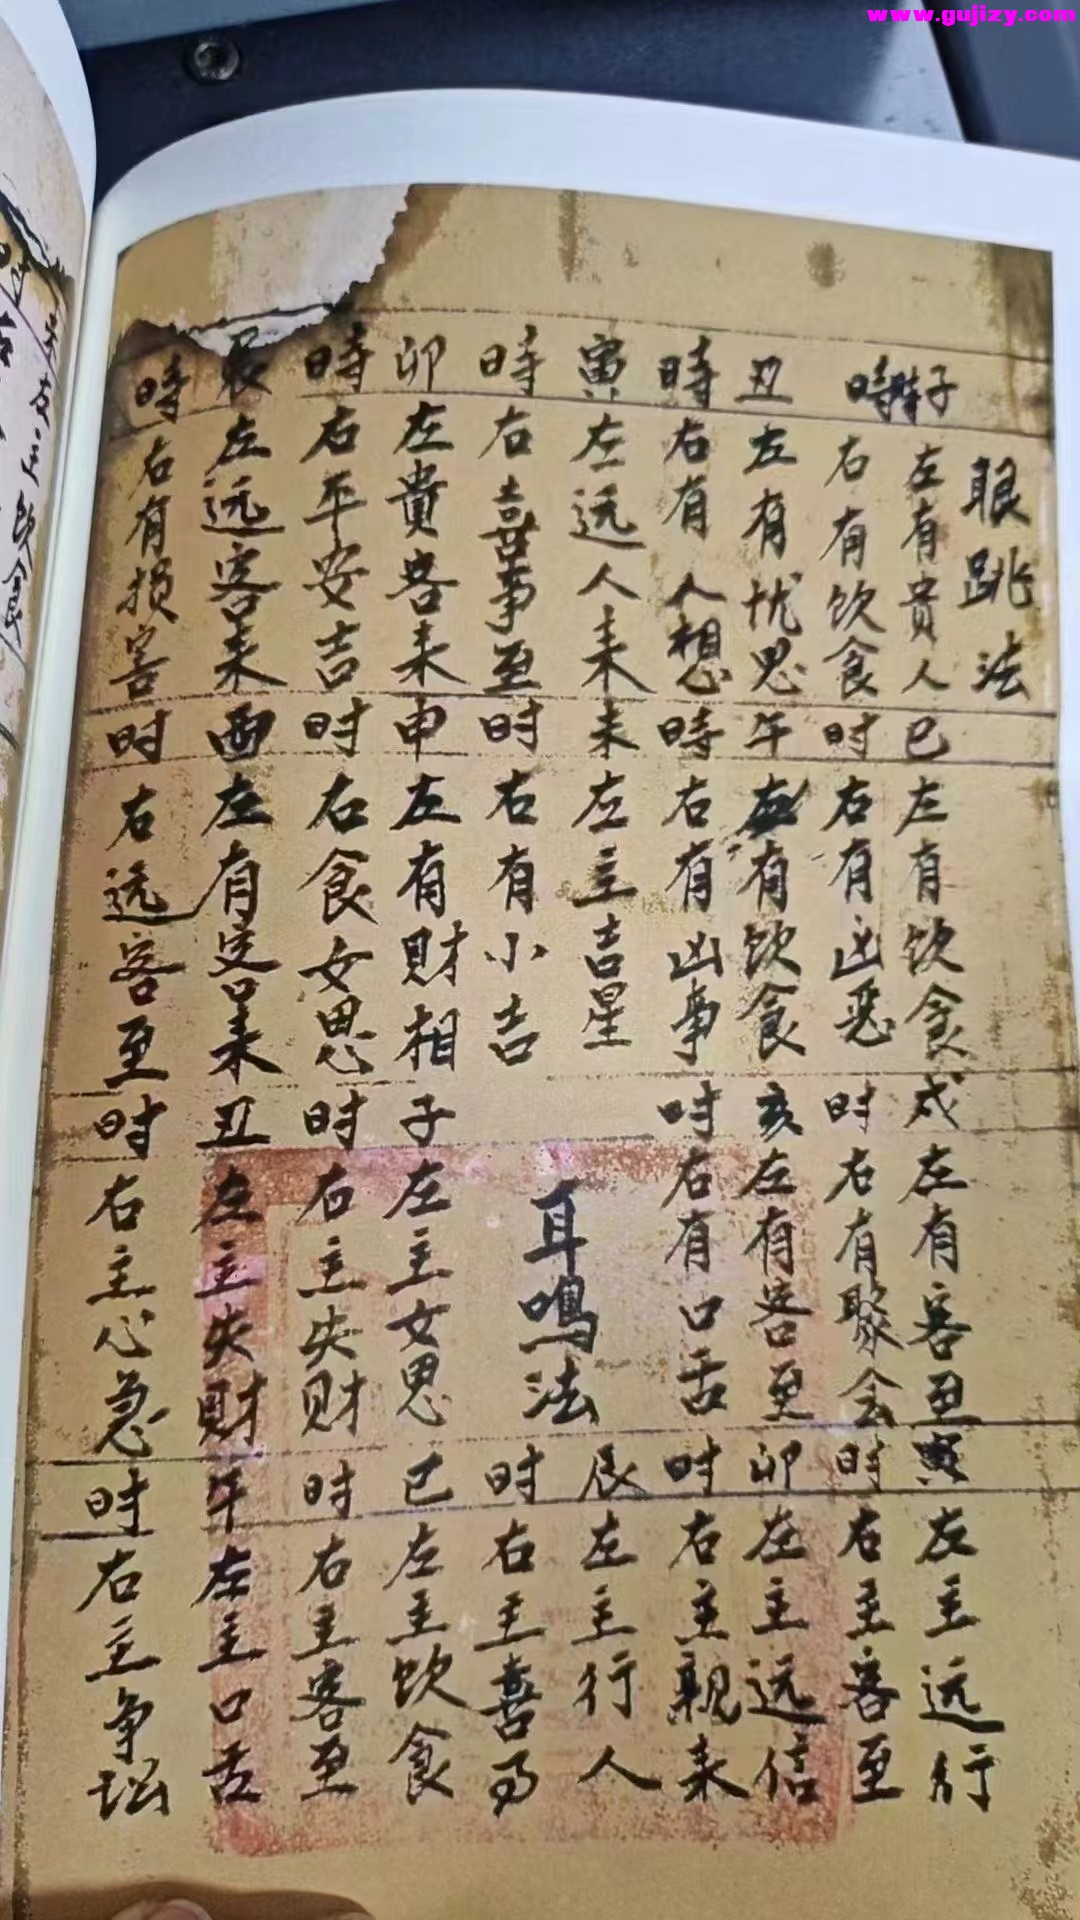 www.gujizy.com
眼跳法
子時
左有貴人
時
右有饮食
丑
左有忧思
時
右有人想
寅
左远人来
時
右喜事至
卯
左貴客来
時
右平安吉
辰
左远客来
時
右有损害
巳
左有饮食
时
右有凶恶
午
左有饮食
時
右有凶事
未
左主吉星
时
右有小吉
申
左有財相
时
右食女思
酉
左有客来
时
右远客至
戌
左有客至
时
右有聚会
亥
左有客至
时
右有口舌
耳鳴法
子
左主女思
时
右主失财
丑
左主失財
时
右主心急
寅
左主远行
时
右主客至
卯
左主远信
时
右主親来
辰
左主行人
时
右主喜
巳
左主饮食
时
右主客至
午
左主口舌
时
右主争
左主饮食